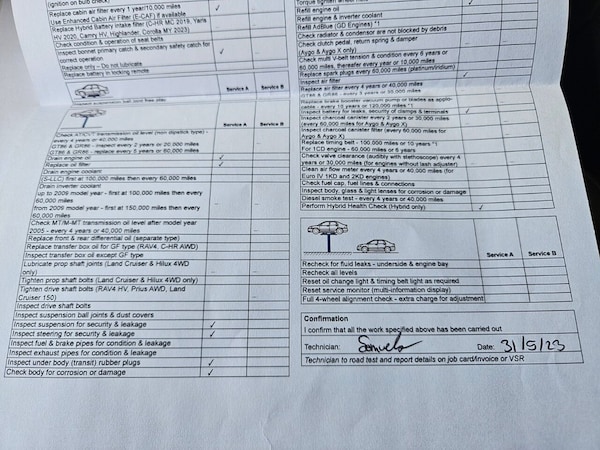 (ignition on bulb check)
Replace cabin air filter every 1 year/10,000 miles
Use Enhanced Cabin Air Filter (E-CAF) if available
Replace Hybrid Battery intake filter (C-HR MC 2019, Yaris
HV 2020, Camry HV, Highlander, Corolla MY 2023)
Check condition & operation of seat belts
Inspect bonnet primary catch & secondary safety catch for
correct operation
Replace only – Do not lubricate
Replace battery in locking remote
Service A Service B
Inspect suspension ball and free play
Service A Service B
Check AT/CVT transmission oil level (non dipstick type) -
every 4 years or 40,000 miles
GT86 & GR86 - inspect every 2 years or 20,000 miles
GT86 & GR86 - replace 5 years or 60,000 miles
Drain engine oil ✓
Replace oil filter ✓
Drain engine coolant
(S-LLC) first at 100,000 miles then every 60,000 miles
Drain inverter coolant
up to 2009 model year - first at 100,000 miles then every
60,000 miles
from 2009 model year - first at 150,000 miles then every
60,000 miles
Check MT/M-MT transmission oil level after model year
2005 - every 4 years or 40,000 miles
Replace front & rear differential oil (separate type)
Replace transfer box oil for GF type (RAV4, C-HR AWD)
Inspect transfer box oil except GF type
Lubricate prop shaft joints (Land Cruiser & Hilux 4WD
only)
Tighten prop shaft bolts (Land Cruiser & Hilux 4WD only)
Tighten drive shaft bolts (RAV4 HV, Prius AWD, Land
Cruiser 150)
Inspect drive shaft bolts
Inspect suspension ball joints & dust covers
Inspect suspension for security & leakage ✓
Inspect steering for security & leakage ✓
Inspect fuel & brake pipes for condition & leakage ✓
Inspect exhaust pipes for condition & leakage
Inspect under body (transit) rubber plugs ✓
Check body for corrosion or damage ✓
Refill engine oil
Refill engine & inverter coolant
Refill AdBlue (GD Engines) *1
Check radiator & condensor are not blocked by debris
Check clutch pedal, return spring & damper
(Aygo & Aygo X only)
Check multi V-belt tension & condition every 6 years or
60,000 miles, thereafter every year or 10,000 miles
Replace spark plugs every 60,000 miles (platinum/iridium)
Inspect air filter
Replace air filter every 4 years or 40,000 miles
GT86 & GR86 - every 3 years or 30,000 miles
Replace brake booster vacuum pump or blades as applic-
cable - every 10 years or 120,000 miles *1
Inspect battery for leaks, security of clamps & terminals
Inspect charcoal canister every 2 years or 20,000 miles
(every 60,000 miles for Aygo & Aygo X)
Inspect charcoal canister filter (every 60,000 miles for
Aygo & Aygo X)
Replace timing belt - 100,000 miles or 10 years *1
For 1CD engine - 60,000 miles or 6 years
Check valve clearance (audibly with stethoscope) every 4
years or 30,000 miles (for engines without lash adjuster)
Clean air flow meter every 4 years or 40,000 miles (for
Euro IV 1KD and 2KD engines)
Check fuel cap, fuel lines & connections
Inspect body, glass & light lenses for corrosion or damage
Diesel smoke test - every 4 years or 40,000 miles
Perform Hybrid Health Check (Hybrid only) ✓
Service A Service B
Recheck for fluid leaks - underside & engine bay
Recheck all levels
Reset oil change light & timing belt light as required
Reset service monitor (multi-information display)
Full 4-wheel alignment check - extra charge for adjustment
Confirmation
I confirm that all the work specified above has been carried out
Technician: Date: 31/5/23
Technician to road test and report details on job card/invoice or VSR